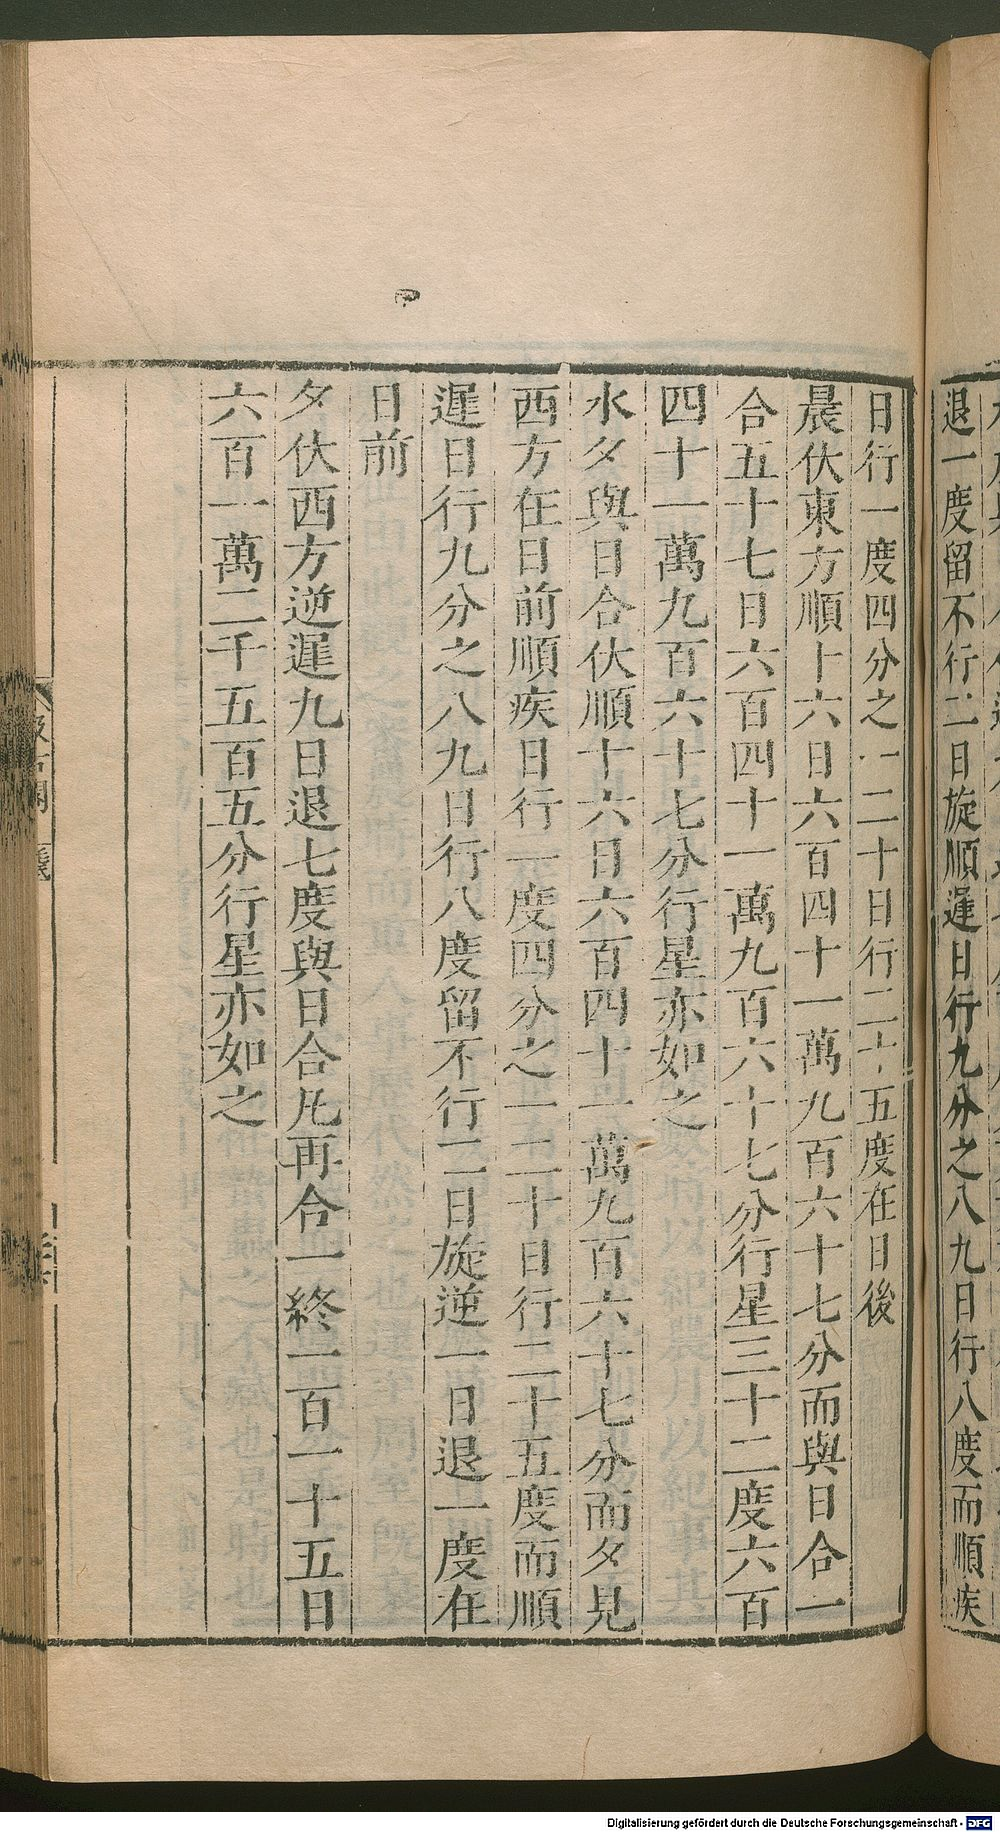 退一度留不行二日旋順遲日行九分之八九日行八度而順疾
日行一度四分之一二十日行二十五度在日後
晨伏東方順十六日六百四十一萬九百六十七分而與日合一
合五十七日六百四十一萬九百六十七分行星三十二度六百
四十一萬九百六十七分行星亦如之
水夕與日合伏順十六日六百四十一萬九百六十七分而夕見
西方在日前順疾日行一度四分之一二十日行二十五度而順
遲日行九分之八九日行八度留不行二日旋逆一日退一度在
日前
夕伏西方逆遲九日退七度與日合凡再合一終一百一十五日
六百一萬二千五百五分行星亦如之
Digitalisierung gefördert durch die Deutsche Forschungsgemeinschaft - DFG